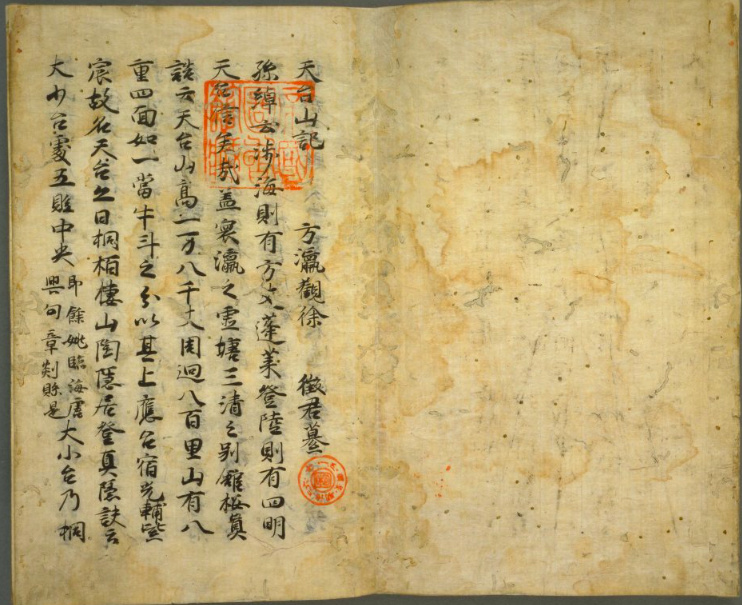 天台山記　方瀛觀徐　徵君纂
孫綽云涉海則有方丈蓬萊登陸則有四明
天台信矣哉蓋寰瀛之靈墟三清之別館桉真
誥云天台山高一万八千丈周迴八百里山有八
重四面如一當牛斗之分以其上應台宿光輔紫
宸故名天台亦曰桐栢棲山陶隱居登真隱訣云
大小台處五縣中央即餘姚臨海唐興句章剡縣是大小台乃桐